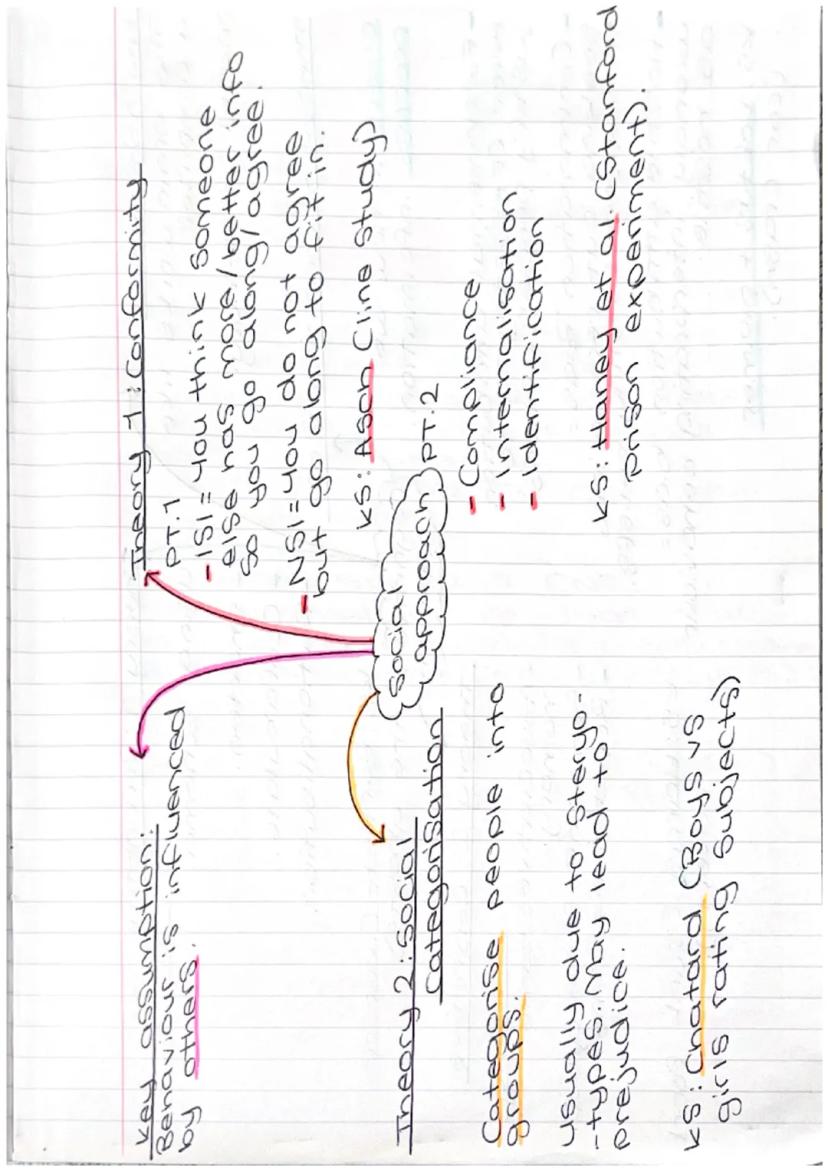 Key assumption:
Behaviour is influenced
by others.
Theory 1: Conformity
PT.1
- ISI = You think someone
else has more/better info
so you go along/agree.
- NSI = You do not agree
but go along to fit in.
KS: Asch (line study)
Social
approach
PT.2
- Compliance
- Internalisation
- Identification
KS: Haney et al. (Stanford
prison experiment).
Theory 2: Social
Categorisation
Categorise people into
groups.
Usually due to Steryo-
-types. May lead to
prejudice.
KS: Chatard (Boys vs
girls rating subjects)